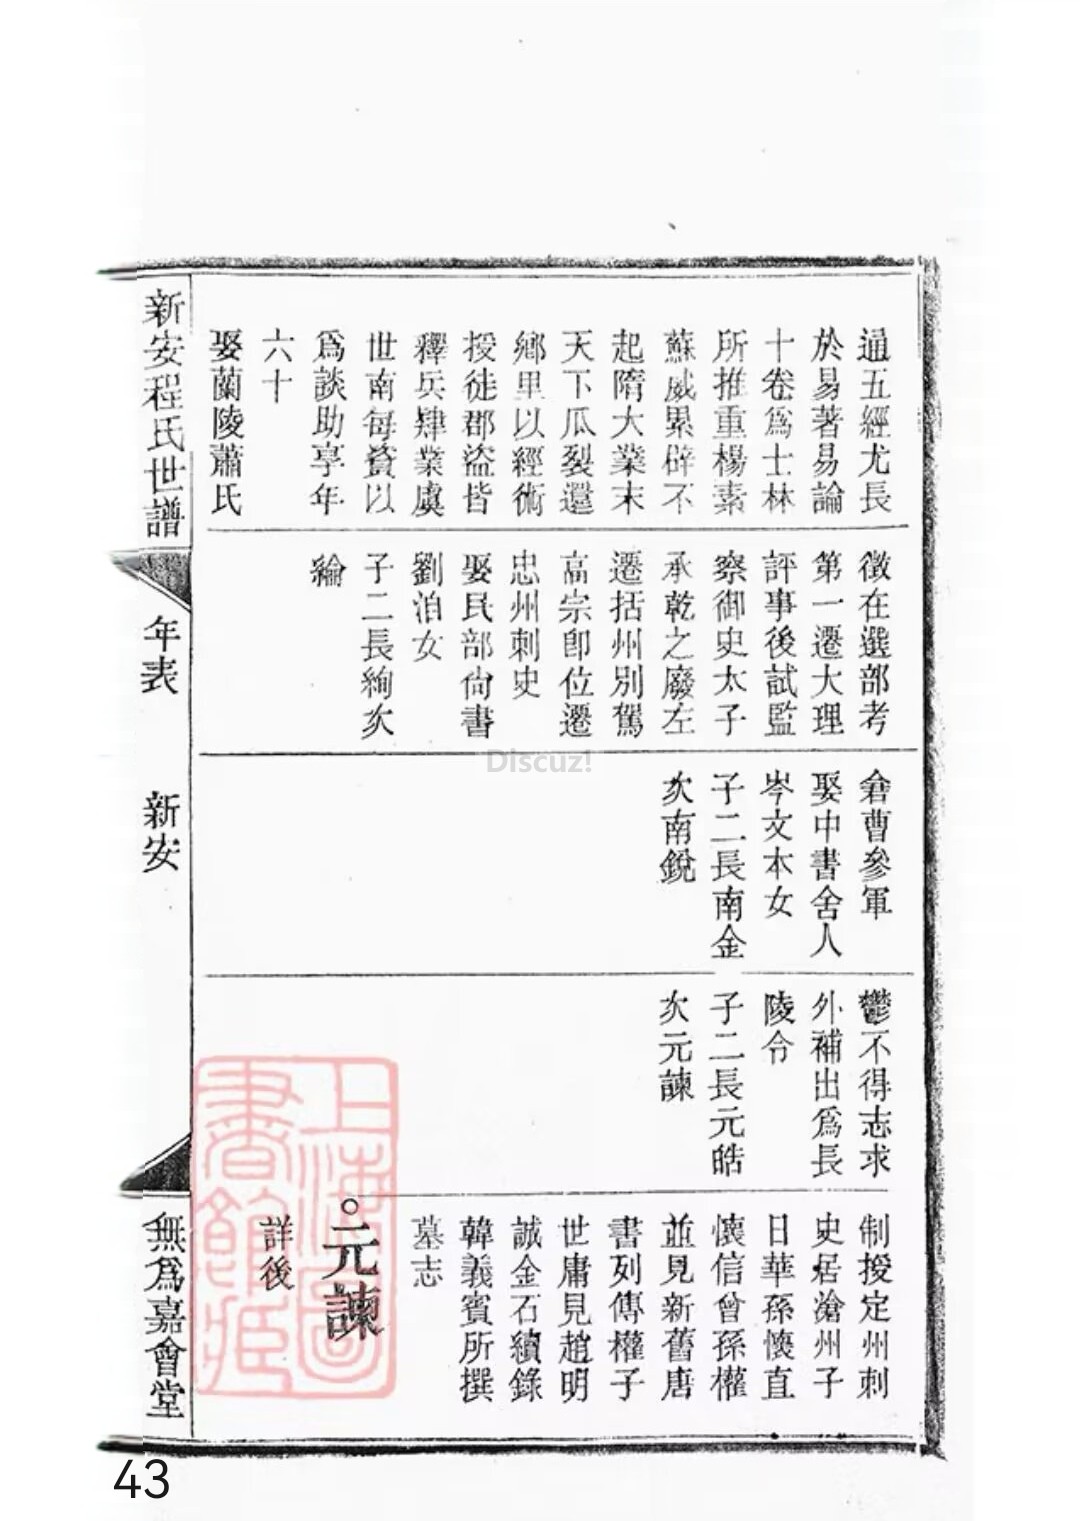 通五經尤長
於易著易論
十卷爲士林
所推重楊素
蘇威累辟不
起隋大業末
天下瓜裂還
鄉里以經術
授徒郡盜皆
釋兵肄業虞
世南每資以
爲談助享年
六十
娶蘭陵蕭氏
徵在選部考
第一遷大理
評事後試監
察御史太子
承乾之廢左
遷括州別駕
高宗卽位遷
忠州刺史
娶民部尙書
劉洎女
子二長絢次
綸
倉曹參軍
娶中書舍人
岑文本女
子二長南金
次南銳
鬱不得志求
外補出爲長
陵令
子二長元皓
次元諫
制授定州刺
史居滄州子
日華孫懷直
懷信曾孫權
並見新舊唐
書列傳權子
世庸見趙明
誠金石續錄
韓義賓所撰
墓志
元諫
詳後
新安程氏世譜
年表
新安
無爲嘉會堂
上海圖
書館藏
Discuz!
43